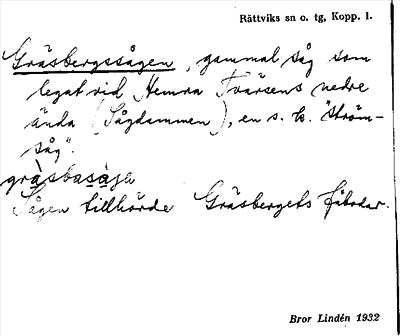 Rättviks sn o. tg, Kopp. l.
Gräsbergssågen, gammal såg som
legat vid Hemra Tvärsens nedre
ända (Sågdammen), en s. k. "ström-
såg".
gràsbasàga
Sågen tillhörde Gräsbergets fäbodar.
Bror Lindén 1932